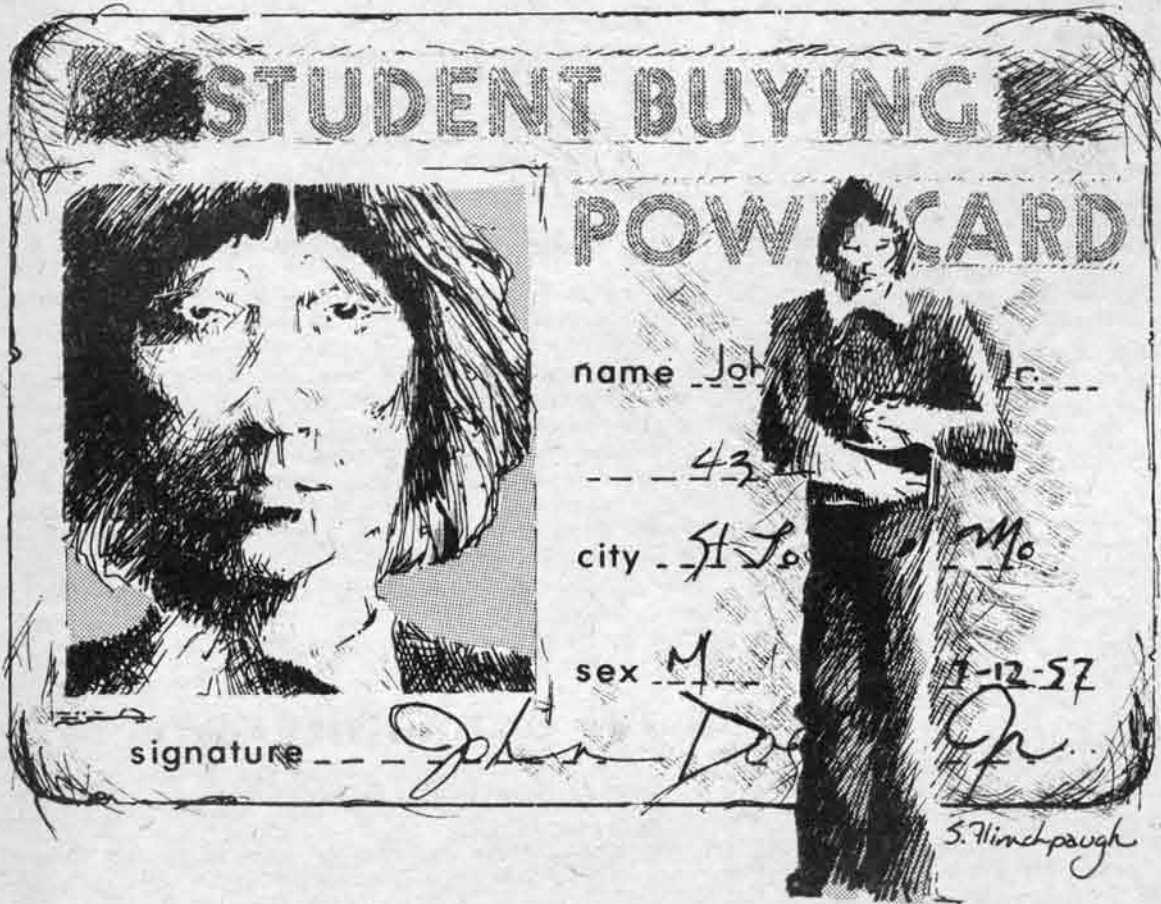 STUDENT BUYING
POW CARD
name Joh Jr.
43
city St Lo Mo
sex M 1-12-57
signature John Do Jr.
S. Flinchpaugh